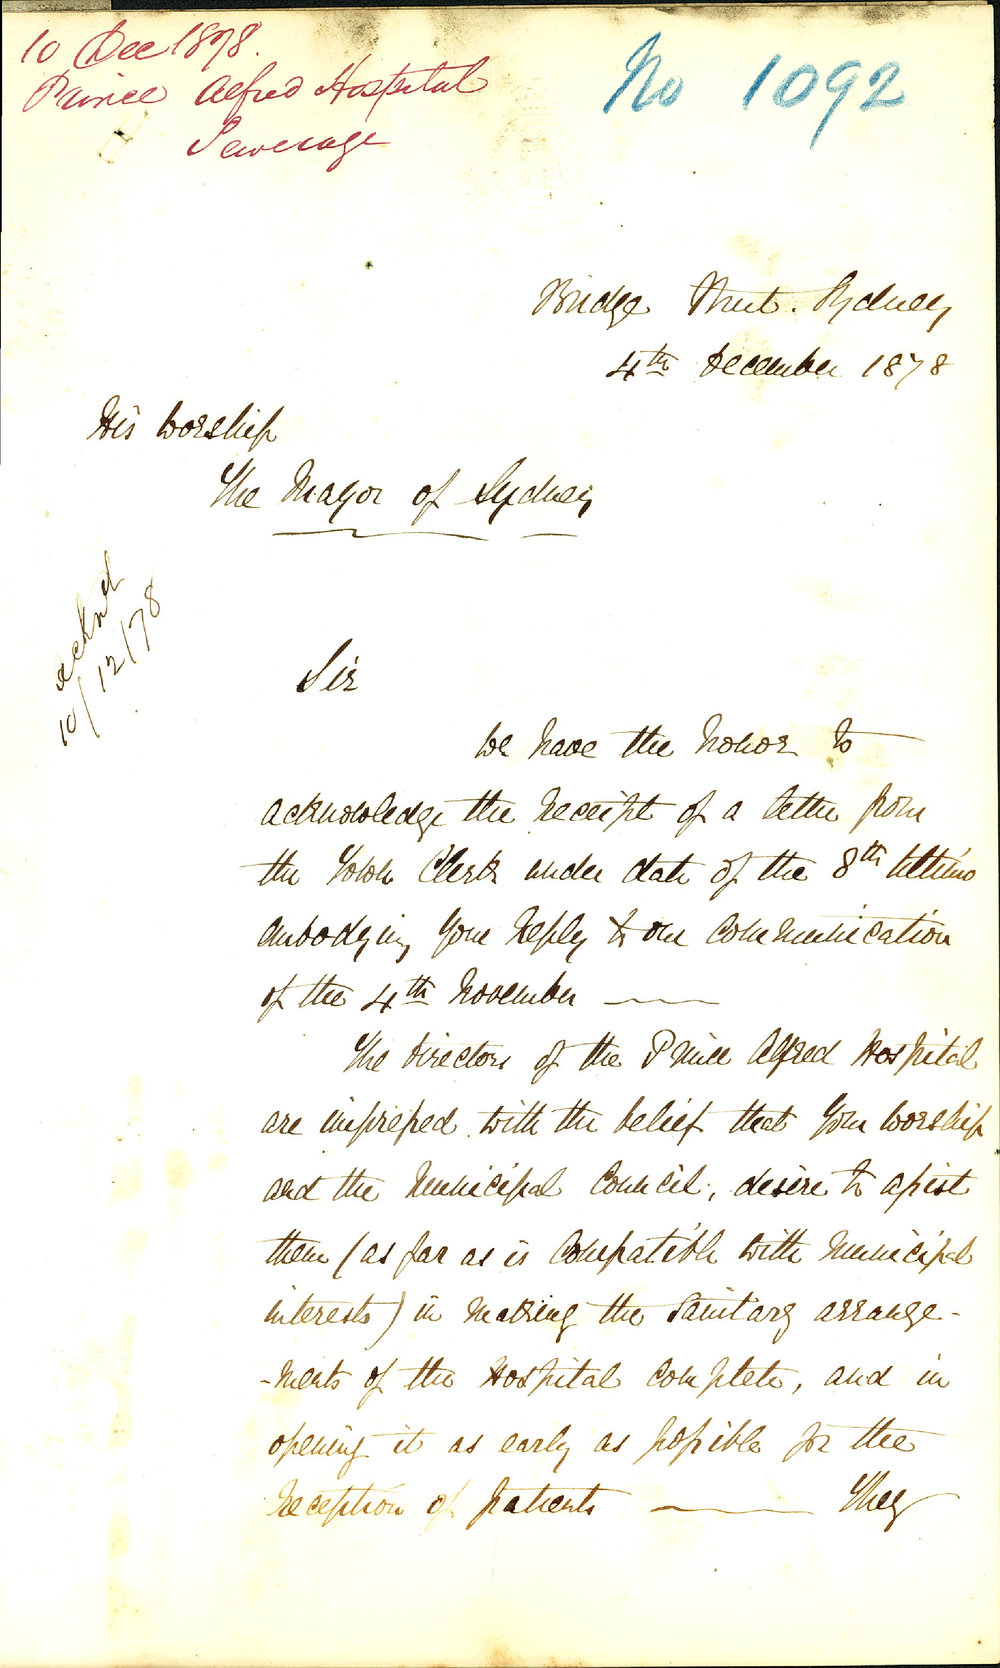 10 Dec 1878.
Prince Alfred Hospital
Sewerage
No 1092
Bridge Street. Sydney
4th December 1878
His Worship
The Mayor of Sydney
acknd
10/12/78
Sir
We have the honor to
acknowledge the receipt of a letter from
the Town Clerk under date of the 8th Ultimo
embodying your reply to our communication
of the 4th November
The Directors of the Prince Alfred Hospital
are impressed with the belief that Your Worship
and the Municipal Council, desire to assist
them (as far as is compatible with Municipal
interests) in making the sanitary arrange-
-ments of the Hospital complete, and in
opening it as early as possible for the
reception of patients They